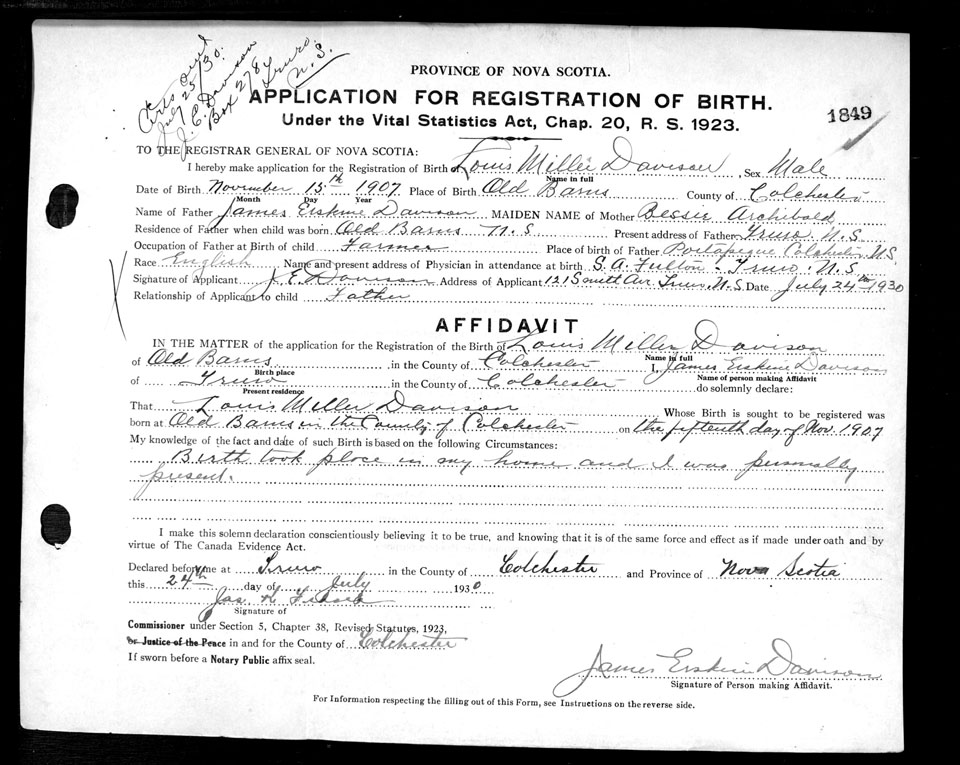 Certs out
July 25/30.
J. E. Davison
Box 278
Truro.
N. S.
PROVINCE OF NOVA SCOTIA.
APPLICATION FOR REGISTRATION OF BIRTH.
1849
Under the Vital Statistics Act, Chap. 20, R. S. 1923.
TO THE REGISTRAR GENERAL OF NOVA SCOTIA:
I hereby make application for the Registration of Birth of Louis Miller Davison, Sex Male
Name in full
Date of Birth November 15th 1907 Place of Birth Old Barns County of Colchester
Month Day Year
Name of Father James Erskine Davison MAIDEN NAME of Mother Bessie Archibald
Residence of Father when child was born Old Barns N. S. Present address of Father Truro N. S.
Occupation of Father at Birth of child Farmer Place of birth of Father Portapeque Colchester N S
Race English Name and present address of Physician in attendance at birth S. A. Fulton - Truro. N. S.
Signature of Applicant J. E. Davison Address of Applicant 121 South Ave. Truro, N-S. Date July 24th 1930
Relationship of Applicant to child Father
AFFIDAVIT
IN THE MATTER of the application for the Registration of the Birth of Louis Miller Davison
Name in full
of Old Barns, in the County of Colchester I, James Erskine Davison
Birth place Name of person making Affidavit
of Truro in the County of Colchester do solemnly declare:
Present residence
That Louis Miller Davison Whose Birth is sought to be registered was
born at Old Barns in the County of Colchester on the fifteenth day of Nov. 1907
My knowledge of the fact and date of such Birth is based on the following Circumstances:
Birth took place in my home and I was personally
present.
I make this solemn declaration conscientiously believing it to be true, and knowing that it is of the same force and effect as if made under oath and by
virtue of The Canada Evidence Act.
Declared before me at Truro in the County of Colchester and Province of Nova Scotia
this 24th day of July 1930
Jas. K. Fraser
Signature of
Commissioner under Section 5, Chapter 38, Revised Statutes, 1923,
or Justice of the Peace in and for the County of Colchester
If sworn before a Notary Public affix seal.
James Erskine Davison
Signature of Person making Affidavit.
For Information respecting the filling out of this Form, see Instructions on the reverse side.